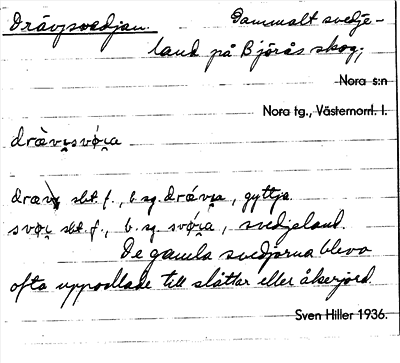 Drävjsvedjan. Gammalt svedje-
land på Björås skog,
Nora s:n
Nora tg., Västernorrl. l.
drævi̯svǿi̯a
drævi̯ sbt. f., b. sg. drǽvi̯a, gyttja
svøi̯ sbt. f., b. sg. svǿi̯a, svedjeland.
De gamla svedjorna blevo
ofta uppodlade till slåttar eller åkerjord.
Sven Hiller 1936.